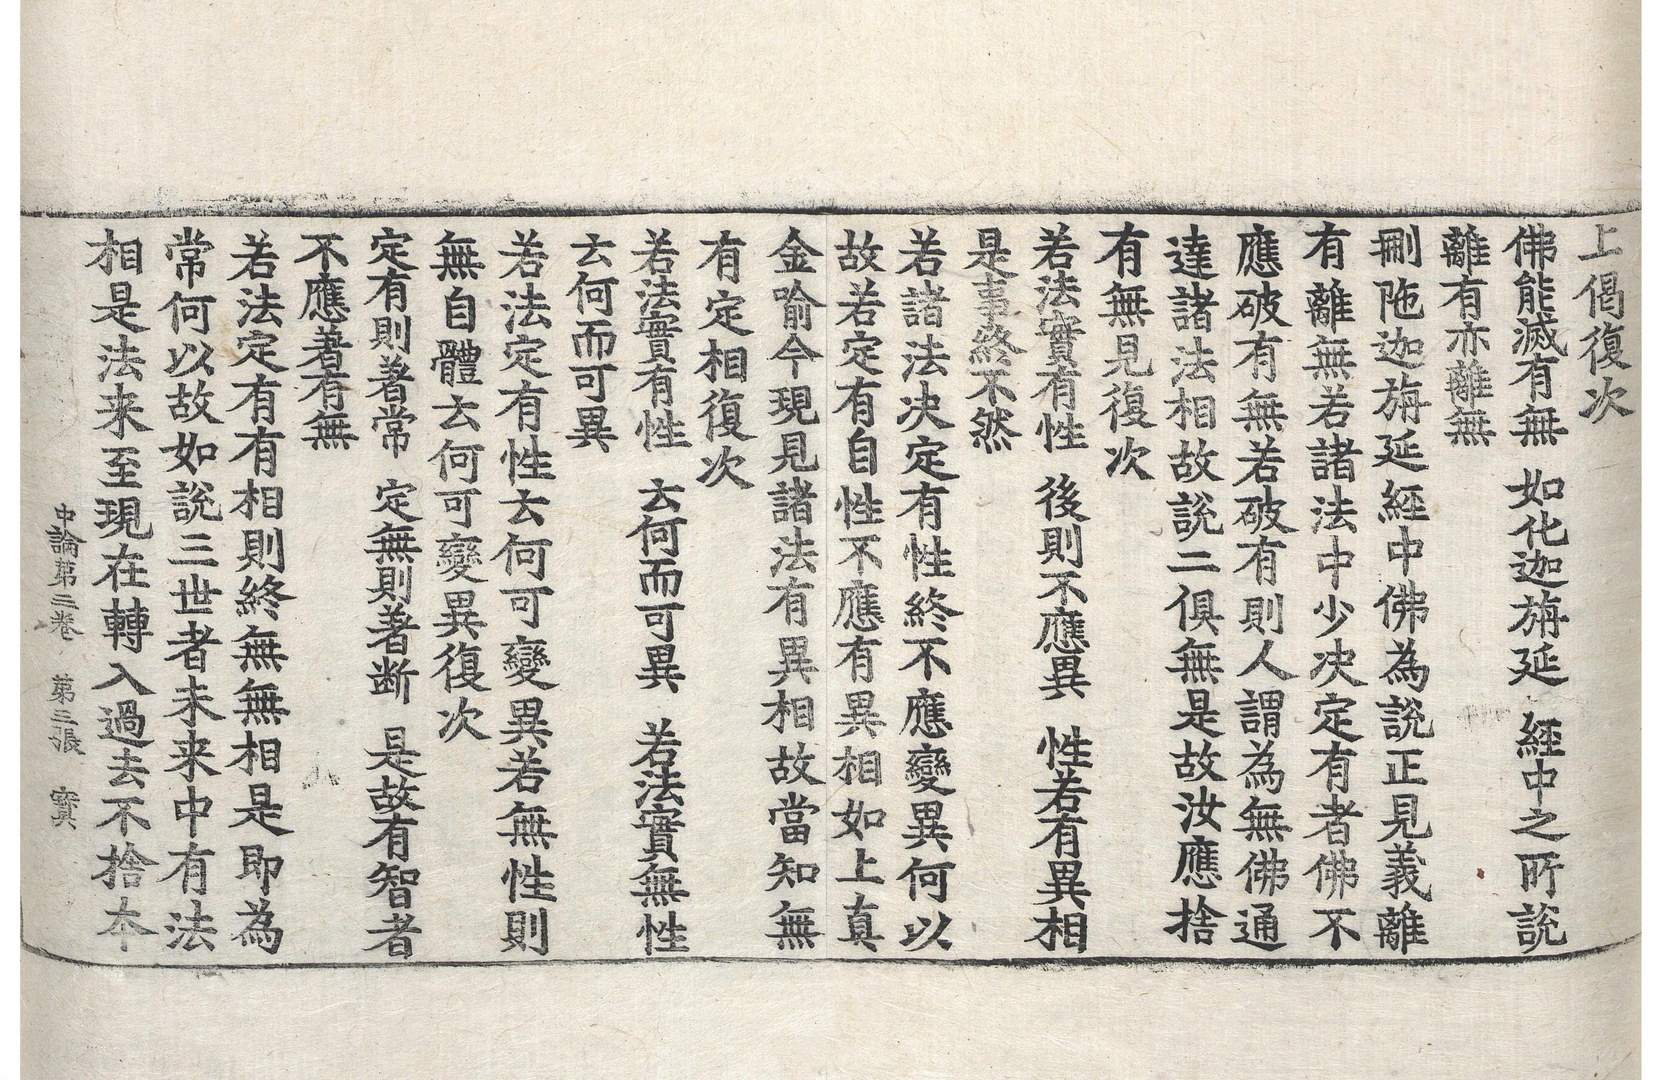 上偈復次
佛能滅有無 如化迦旃延 經中之所說
離有亦離無
刪陁迦旃延經中佛為說正見義離
有離無若諸法中少決定有者佛不
應破有無若破有則人謂為無佛通
達諸法相故說二俱無是故汝應捨
有無見復次
若法實有性 後則不應異 性若有異相
是事終不然
若諸法決定有性終不應變異何以
故若定有自性不應有異相如上真
金喻今現見諸法有異相故當知無
有定相復次
若法實有性 云何而可異 若法實無性
云何而可異
若法定有性云何可變異若無性則
無自體云何可變異復次
定有則著常 定無則著斷 是故有智者
不應著有無
若法定有有相則終無無相是即為
常何以故如說三世者未来中有法
相是法来至現在轉入過去不捨本
中論第三卷 第三張 㝠